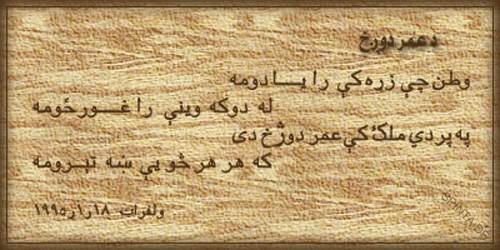 د عمر دوږخ
وطن چې زړه کې را يادومه
له دوکه وينې را غورځومه
په پردي ملک کې عمر دوږخ دی
که هر هر څو يې ښه تېرومه
ولفرات ١٨ر١ر١٩٩٥